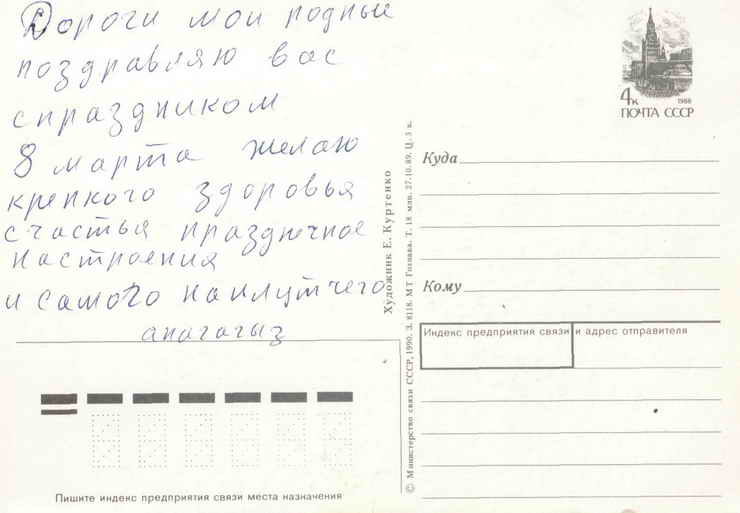 Дороги мои родные
поздравляю вас
спраздником
8 марта желаю
крепкого здоровья
счастья празднечное
настроения
и самого наилутчего
апагагыз
4к 1988
ПОЧТА СССР
Куда
Кому
Индекс предприятия связи и адрес отправителя
Пишите индекс предприятия связи места назначения
Художник Е. Куртенко
© Министерство связи СССР, 1990. З. 8118. МТ Гознака. Т. 18 млн. 27.10.89. Ц. 5 к.